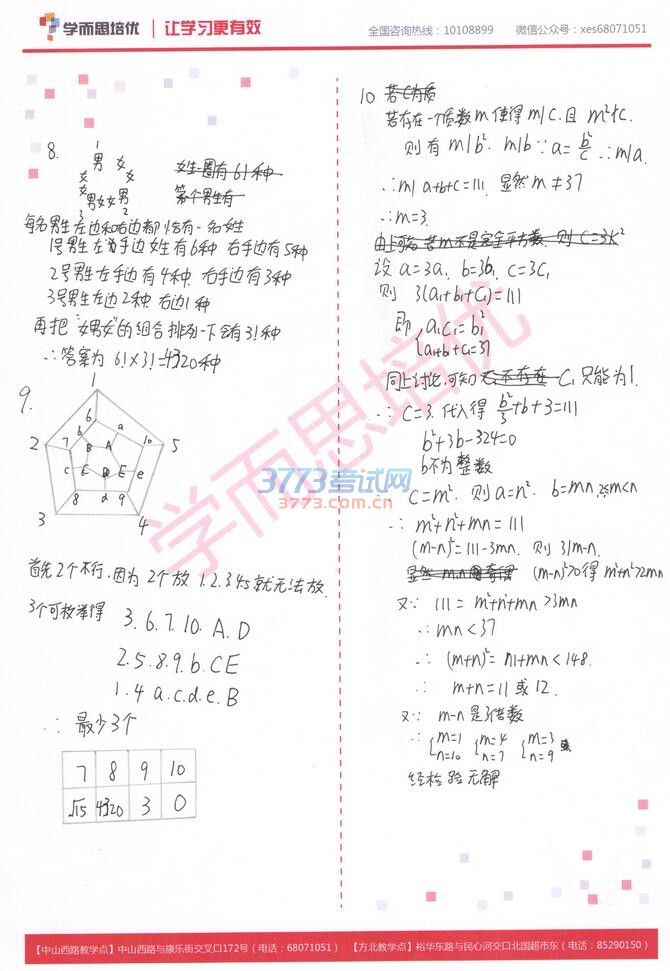 学而思培优 | 让学习更有效
全国咨询热线：10108899 微信公众号：xes68071051
8.
1
男 女
女 女
男女女男
3 2
女生一圈有6!种
第个男生有
每名男生左边和右边都恰有一名女生
1号男生左手边女生有6种 右手边有5种
2号男生左手边有4种. 右手边有3种
3号男生左边2种. 右边1种
再把"女男女"的组合排列一下会有3!种
∴答案为 6!×3!=4320种
9.
1
6
b a
2 7 B A 10 5
c E D E e
8 d 9
3 4
首先2个不行，因为2个放 1.2.3.4.5就无法放.
3个可枚举得 3.6.7.10.A.D
2.5.8.9.b.CE
1.4 a.c.d.e.B
∴ 最少3个
7 8 9 10
√15 4320 3 0
10 若C为质
若存在一个质数m使得m|c.且 m²∤c.
则有 m|b². m|b ∵a=b²/c ∴m|a.
∴m| a+b+c=111. 显然 m≠37
∴m=3.
由上可知 若m不是完全平方数. 则 C=3k²
设 a=3a₁ b=3b₁ c=3c₁
则 3(a₁+b₁+c₁)=111
即 { a₁c₁=b₁²
a₁+b₁+c=37
同上讨论，可知 不存在 C₁只能为1.
∴C=3. 代入得 b²/3+b+3=111
b²+3b-324=0
b不为整数
C=m². 则a=n². b=mn m<n
∴ m²+n²+mn=111
(m-n)²=111-3mn. 则 3|m-n.
显然 m.n (m-n)²>0得 m²+n²>2mn
又∵ 111=m²+n²+mn>3mn
∴mn<37
∴ (m+n)²=111+mn<148.
∴ m+n=11 或 12.
又∵ m-n是3倍数
∴ {m=1 n=10 {m=4 n=7 {m=3 n=9
经检验无解
学而思培优
3773考试网
3773.com.cn
【中山西路教学点】中山西路与康乐街交叉口172号（电话：68071051） 【方北教学点】裕华东路与民心河交口北国超市东（电话：85290150）